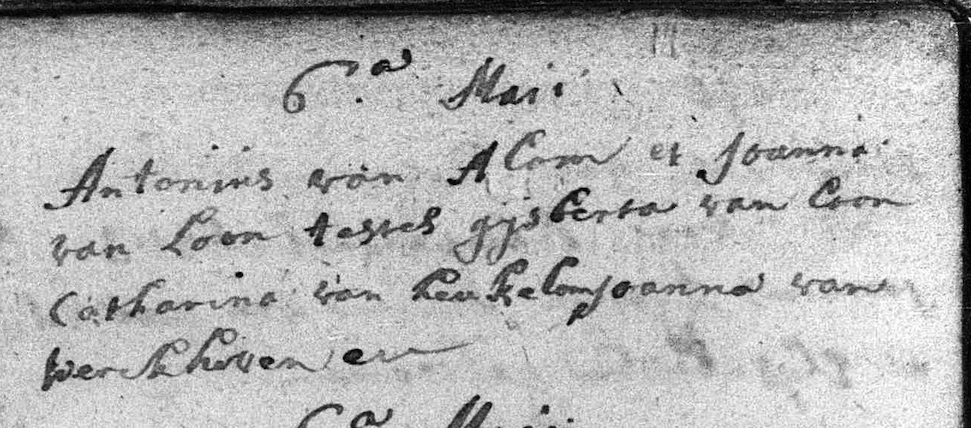 6.a Maii
Antonius van Alem et Joanna
van Loon testes gijsberta van Loon
Catharina van heukelom Joanna van
werckhoven
6a Maii